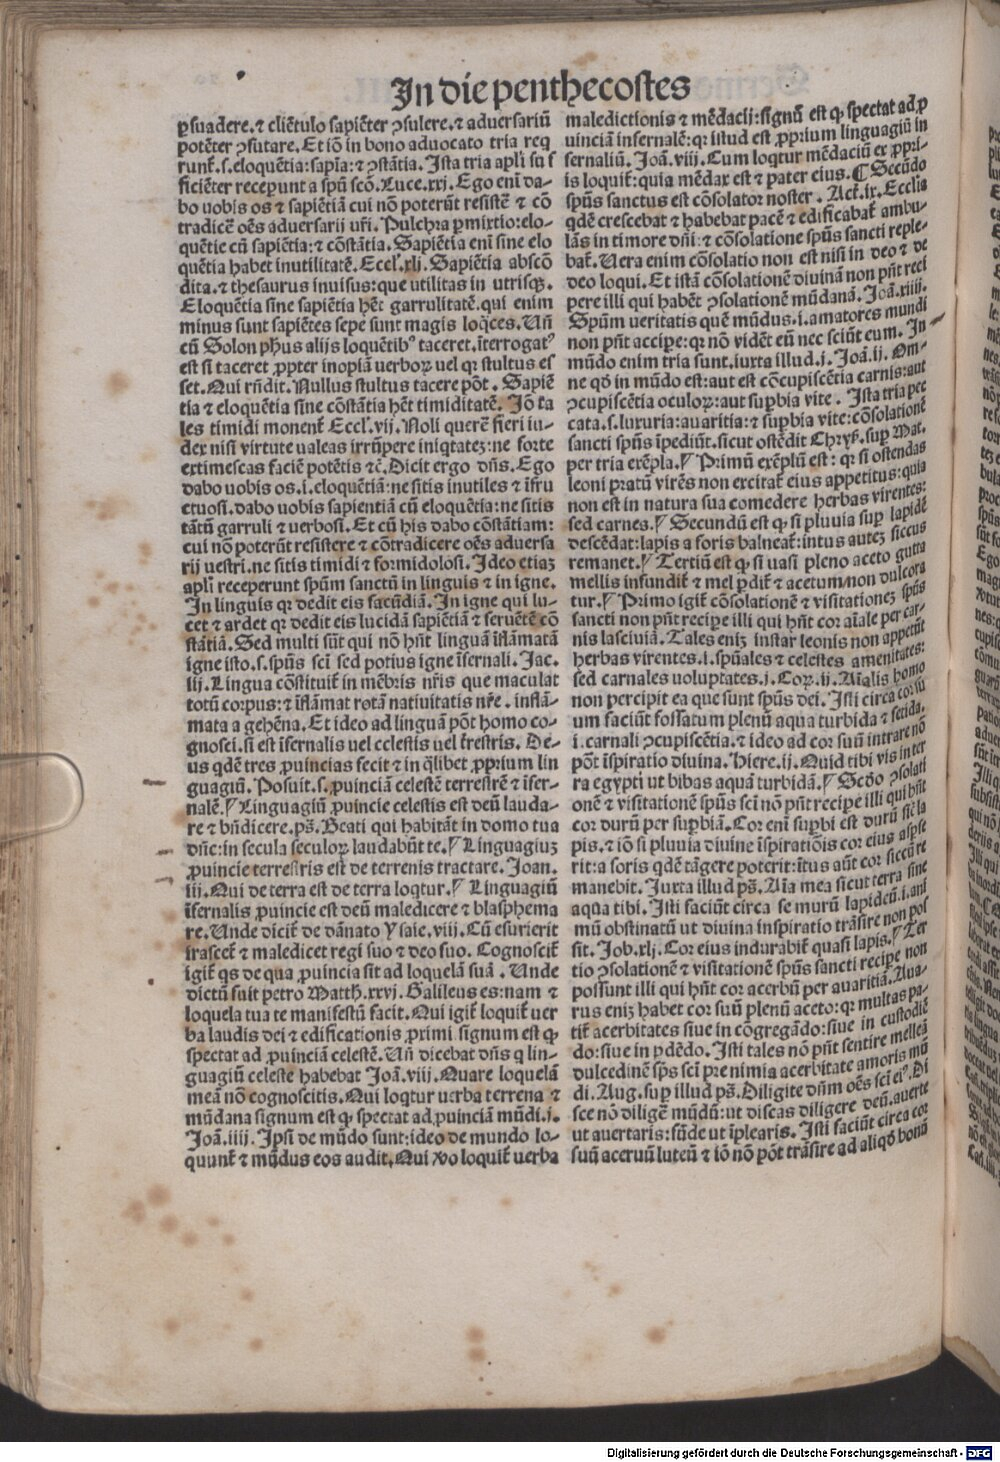 In die penthecostes
ꝑsuadere.⁊ cliẽtulo sapiẽter ꝯsulere.⁊ aduersariũ
potẽter ꝯfutare.Et iõ in bono aduocato tria req̃
runt̃.s.eloquẽtia:sapĩa:⁊ ꝯstãtia.Ista tria apl̃i suf
ficiẽter receperunt a spũ scõ.Luce.xxj.Ego eni da-
bo uobis os ⁊ sapiẽtiã cui nõ poterũt resistẽ ⁊ cõ
tradicẽ oẽs aduersarij ur̃i.Pulchra ꝑmixtio:elo-
quẽtie cũ sapiẽtia:⁊ cõstãtia.Sapiẽtia eni sine elo
quẽtia habet inutilitatẽ.Eccl̃.xlj.Sapiẽtia abscõ
dita.⁊ thesaurus inuisus:que utilitas in utrisqꝫ.
Eloquẽtia sine sapiẽtia hẽt garrulitatẽ.qui enim
minus sunt sapiẽtes sepe sunt magis loq̃ces.Uñ
cũ Solon ph̃us alijs loquẽtibꝰ taceret.ĩterrogatꝰ
est si taceret ꝓpter inopiã uerboꝝ uel qꝛ stultus es
set.Qui rñdit.Nullus stultus tacere põt.Sapiẽ
tia ⁊ eloquẽtia sine cõstãtia hẽt timiditatẽ.Iõ ta
les timidi monent̃ Eccl̃.vij.Noli querẽ fieri iu-
dex nisi virtute ualeas irrũpere iniqtateꝫ:ne forte
extimescas faciẽ potẽtis ⁊c̃.Dicit ergo dñs.Ego
dabo uobis os.i.eloquẽtiã:ne sitis inutiles ⁊ ĩfru
ctuosi.dabo uobis sapientiã cũ eloquẽtia:ne sitis
tãtũ garruli ⁊ uerbosi.Et cũ his dabo cõstãtiam:
cui nõ poterũt resistere ⁊ cõtradicere oẽs aduersa
rij uestri.ne sitis timidi ⁊ formidolosi.Ideo etiaꝫ
apl̃i receperunt spũm sanctũ in linguis ⁊ in igne.
In linguis qꝛ dedit eis facũdiã.In igne qui lu-
cet ⁊ ardet qꝛ dedit eis lucidã sapiẽtiã ⁊ feruẽtẽ cõ
stãtiã.Sed multi sũt qui nõ hñt linguã ĩflãmatã
igne isto.s.spũs sci sed potius igne ĩfernali.Jac.
iij.Lingua cõstituit̃ in mẽbris nr̃is que maculat
totũ corpus:⁊ ĩflãmat rotã natiuitatis nr̃e.inflã-
mata a gehẽna.Et ideo ad linguã põt homo co-
gnosci.si est ĩfernalis uel celestis uel t̃restris.De-
us qdẽ tres ꝓuincias fecit ⁊ in q̃libet ꝓprium lin
guagiũ.Posuit.s.ꝓuinciã celestẽ terrestrẽ ⁊ ĩfer-
nalẽ.¶Linguagiũ ꝓuincie celestis est deũ lauda-
re ⁊ bñdicere.pš.Beati qui habitãt in domo tua
dñe:in secula seculoꝝ laudabũt te.¶Linguagiuꝫ
ꝓuincie terrestris est de terrenis tractare.Joan.
iij.Qui de terra est de terra loqtur.¶Linguagiũ
ĩfernalis ꝓuincie est deũ maledicere ⁊ blasphema
re.Unde dicit̃ de dãnato Ysaie.viij.Cũ esurierit
irascet̃ ⁊ maledicet regi suo ⁊ deo suo.Cognoscit̃
igit̃ qs de qua ꝓuincia sit ad loquelã suã.Unde
dictũ fuit petro Matth.xxvj.Galileus es:nam ⁊
loquela tua te manifestũ facit.Qui igit̃ loquit̃ uer
ba laudis dei ⁊ edificationis ꝓximi signum est ꝙ
spectat ad ꝓuinciã celestẽ.Uñ dicebat dñs q lin-
guagiũ celeste habebat Joã.viij.Quare loquelã
meã nõ cognoscitis.Qui loqtur uerba terrena ⁊
mũdana signum est ꝙ spectat ad ꝓuinciã mũdi.j.
Joã.iiij.Ipsi de mũdo sunt:ideo de mundo lo-
quunt̃ ⁊ mũdus eos audit.Qui ꝟo loquit̃ uerba
maledictionis ⁊ mẽdacij:signũ est ꝙ spectat ad ꝓ
uinciã infernalẽ:qꝛ istud est ꝓprium linguagiũ in
fernaliũ.Joã.viij.Cum loqtur mẽdaciũ ex ꝓpri-
is loquit̃:quia mẽdax est ⁊ pater eius.¶Secũdo
spũs sanctus est cõsolator noster.Act̃.ix.Ecclia
qdẽ crescebat ⁊ habebat pacẽ ⁊ edificabat̃ ambu-
lãs in timore dñi:⁊ cõsolatione spũs sancti reple-
bat̃.Uera enim cõsolatio non est nisi in deo ⁊ de
deo loqui.Et istã cõsolationẽ diuinã non pñt reci
pere illi qui habẽt ꝯsolationẽ mũdanã.Joã.xiiij.
Spũm ueritatis quẽ mũdus.i.amatores mundi
non pñt accipe:qꝛ nõ vidẽt eũ nec sciũt eum.In
mũdo enim tria sunt.iuxta illud.j.Joã.ij.Om-
ne qđ in mũdo est:aut est cõcupiscẽtia carnis:aut
ꝯcupiscẽtia oculoꝝ:aut suꝑbia vite.Ista tria pec
cata.s.luxuria:auaritia:⁊ suꝑbia vite:cõsolationẽ
sancti spũs ĩpediũt.sicut ostẽdit Chryš.suꝑ Mat.
per tria exẽpla.¶Primũ exẽplũ est:qꝛ si ostendas
leoni pratũ virẽs non excitat̃ eius appetitus:quia
non est in natura sua comedere herbas virentes:
sed carnes.¶Secundũ est ꝙ si pluuia suꝑ lapidẽ
descẽdat:lapis a foris balneat̃:intus auteꝫ siccus
remanet.¶Tertiũ est ꝙ si uasi pleno aceto gutta
mellis infundit̃ ⁊ mel ꝑdit̃ ⁊ acetum non dulcora
tur.¶Primo igit̃ cõsolationẽ ⁊ visitationeꝫ spũs
sancti non pñt recipe illi qui hñt cor aĩale per car-
nis lasciuiã.Tales eniꝫ instar leonis non appetũt
herbas virentes.i.spũales ⁊ celestes amenitates:
sed carnales uoluptates.j.Coꝝ.ij.Aĩalis homo
non percipit ea que sunt spũs dei.Isti circa cor su
um faciũt fossatum plenũ aqua turbida ⁊ fetida.
i.carnali ꝯcupiscẽtia.⁊ ideo ad cor suũ intrare nõ
põt ĩspiratio diuina.Hiere.ij.Quid tibi vis inter
ra egypti ut bibas aquã turbidã.¶Scđo ꝯsolati
onẽ ⁊ visitationẽ spũs sci nõ pñt recipe illi qui hñt
cor durũ per suꝑbiã.Cor eni suꝑbi est durũ sic̃ la
pis.⁊ iõ si pluuia diuine ĩspiratiõis cor eius aspse
rit:a foris qdẽ tãgere poterit:ĩtus aũt cor siccũ re
manebit.Juxta illud pš.Aĩa mea sicut terra sine
aqua tibi.Isti faciũt circa se murũ lapideũ.i.ani
mũ obstinatũ ut diuina inspiratio trãsire non pos
sit.Job.xlj.Cor eius indurabit̃ quasi lapis.¶Ter
tio ꝯsolationẽ ⁊ visitationẽ spũs sancti recipe non
possunt illi qui hñt cor acerbũ per auaritiã.Aua-
rus eniꝫ habet cor suũ plenũ aceto:qꝛ multas pa-
tit̃ acerbitates siue in cõgregãdo:siue in custodiẽ
do:siue in ꝑdẽdo.Isti tales nõ pñt sentire melleã
dulcedinẽ sp̃s sci pre nimia acerbitate amoris mũ
di.Aug.suꝑ illud pš.Diligite dñm oẽs sci eiꝰ.Di
sce nõ diligẽ mũdũ:ut discas diligere deũ.auerte
ut auertaris:fũde ut ĩplearis.Isti faciũt circa cor
suũ aceruũ luteũ ⁊ iõ nõ põt trãsire ad aliqđ bonũ
Digitalisierung gefördert durch die Deutsche Forschungsgemeinschaft - DFG